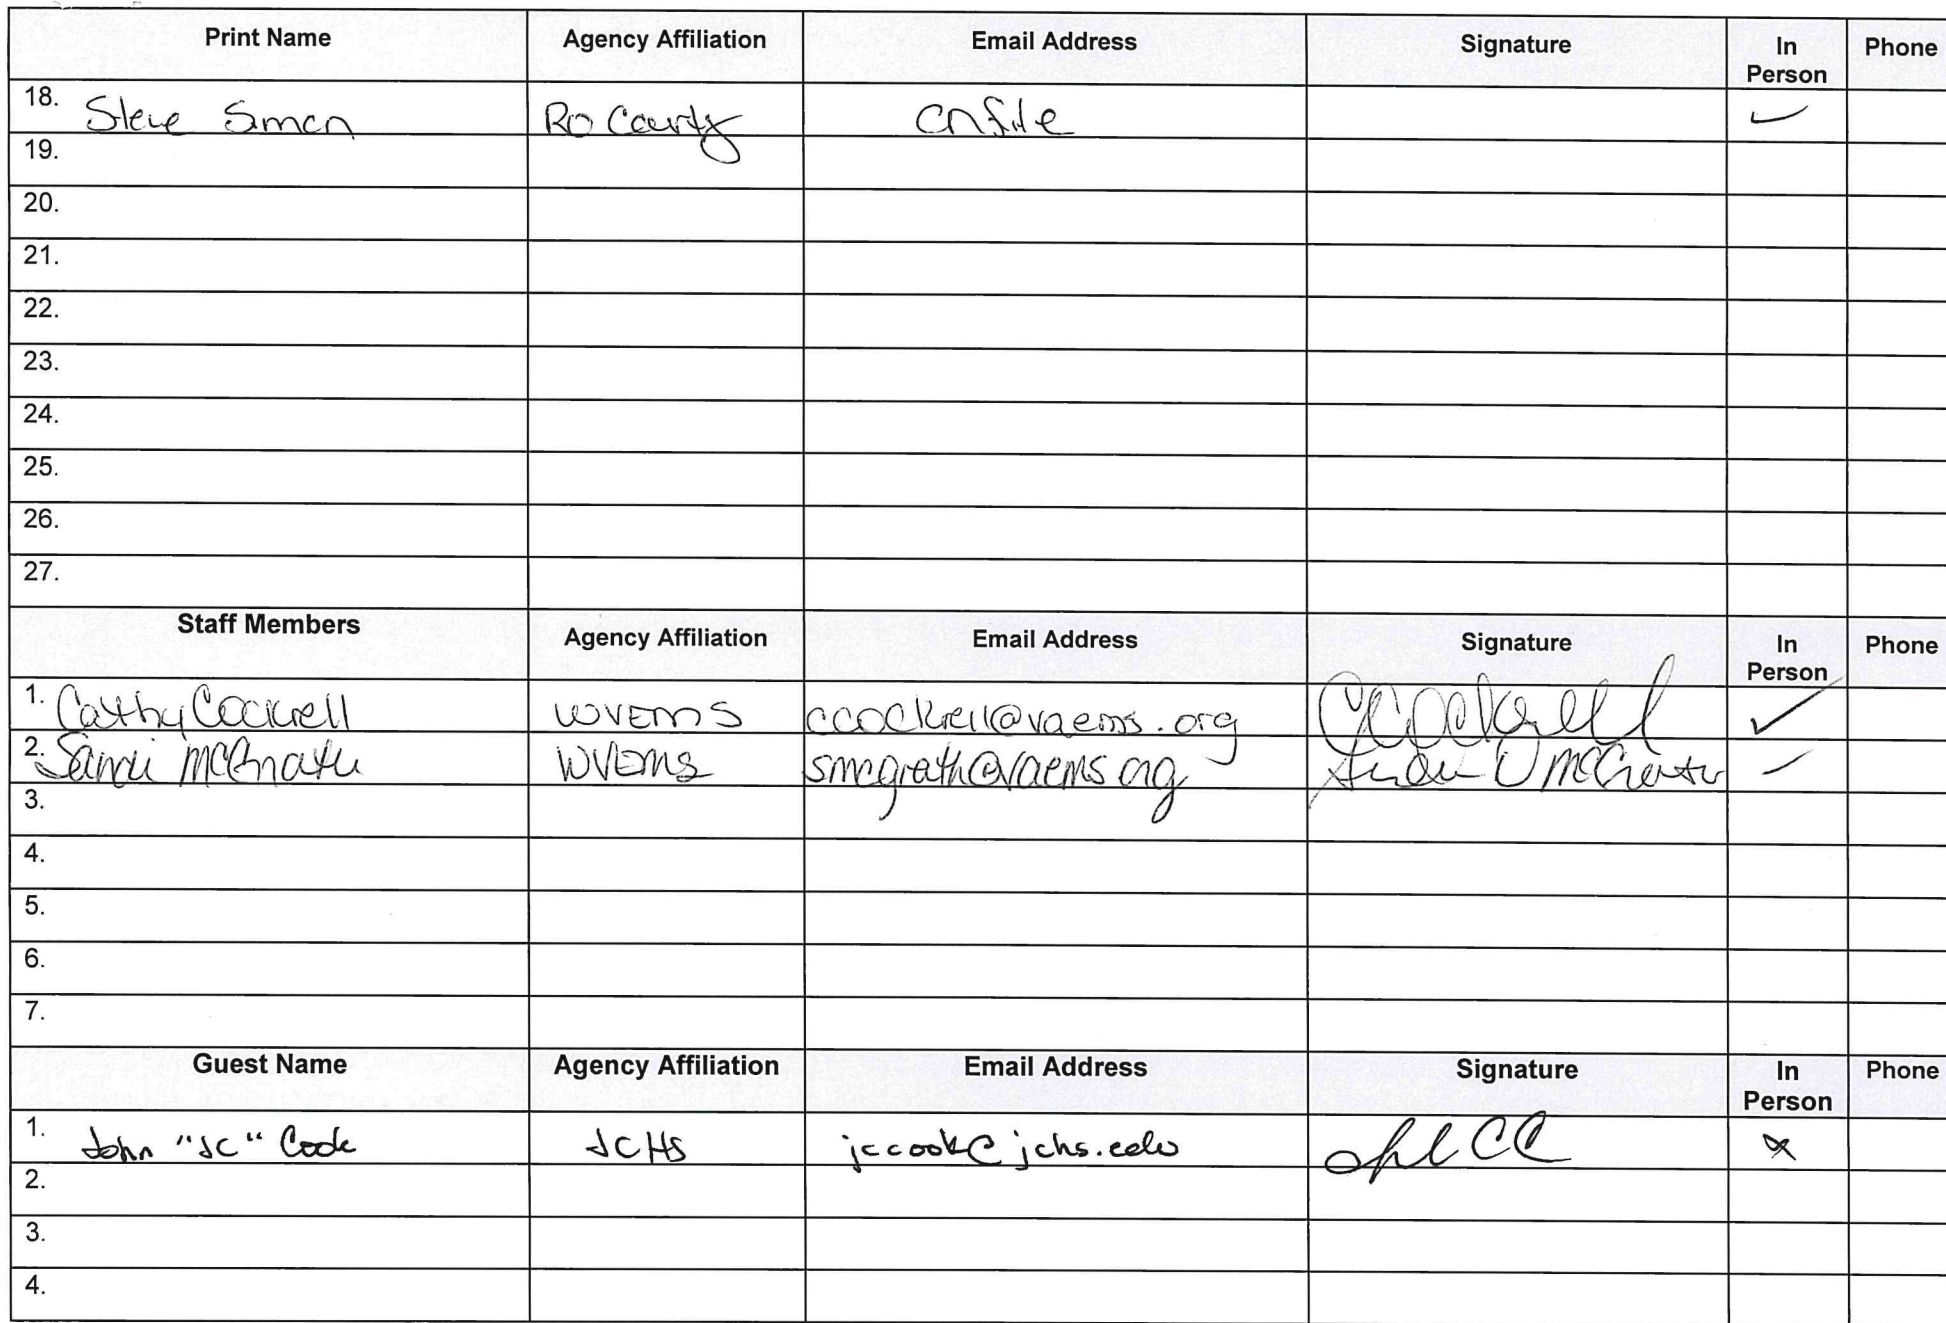 Print Name Agency Affiliation Email Address Signature In Person Phone
18. Steve Simon Ro County on file
19.
20.
21.
22.
23.
24.
25.
26.
27.
Staff Members Agency Affiliation Email Address Signature In Person Phone
1. Cathy Cockrell WVEMS ccockrell@vaems.org CCockrell
2. Sandi McGrath WVEMS smcgrath@vaems.org McGrath
3.
4.
5.
6.
7.
Guest Name Agency Affiliation Email Address Signature In Person Phone
1. John "JC" Cook JCHS jccook@jchs.edu
2.
3.
4.